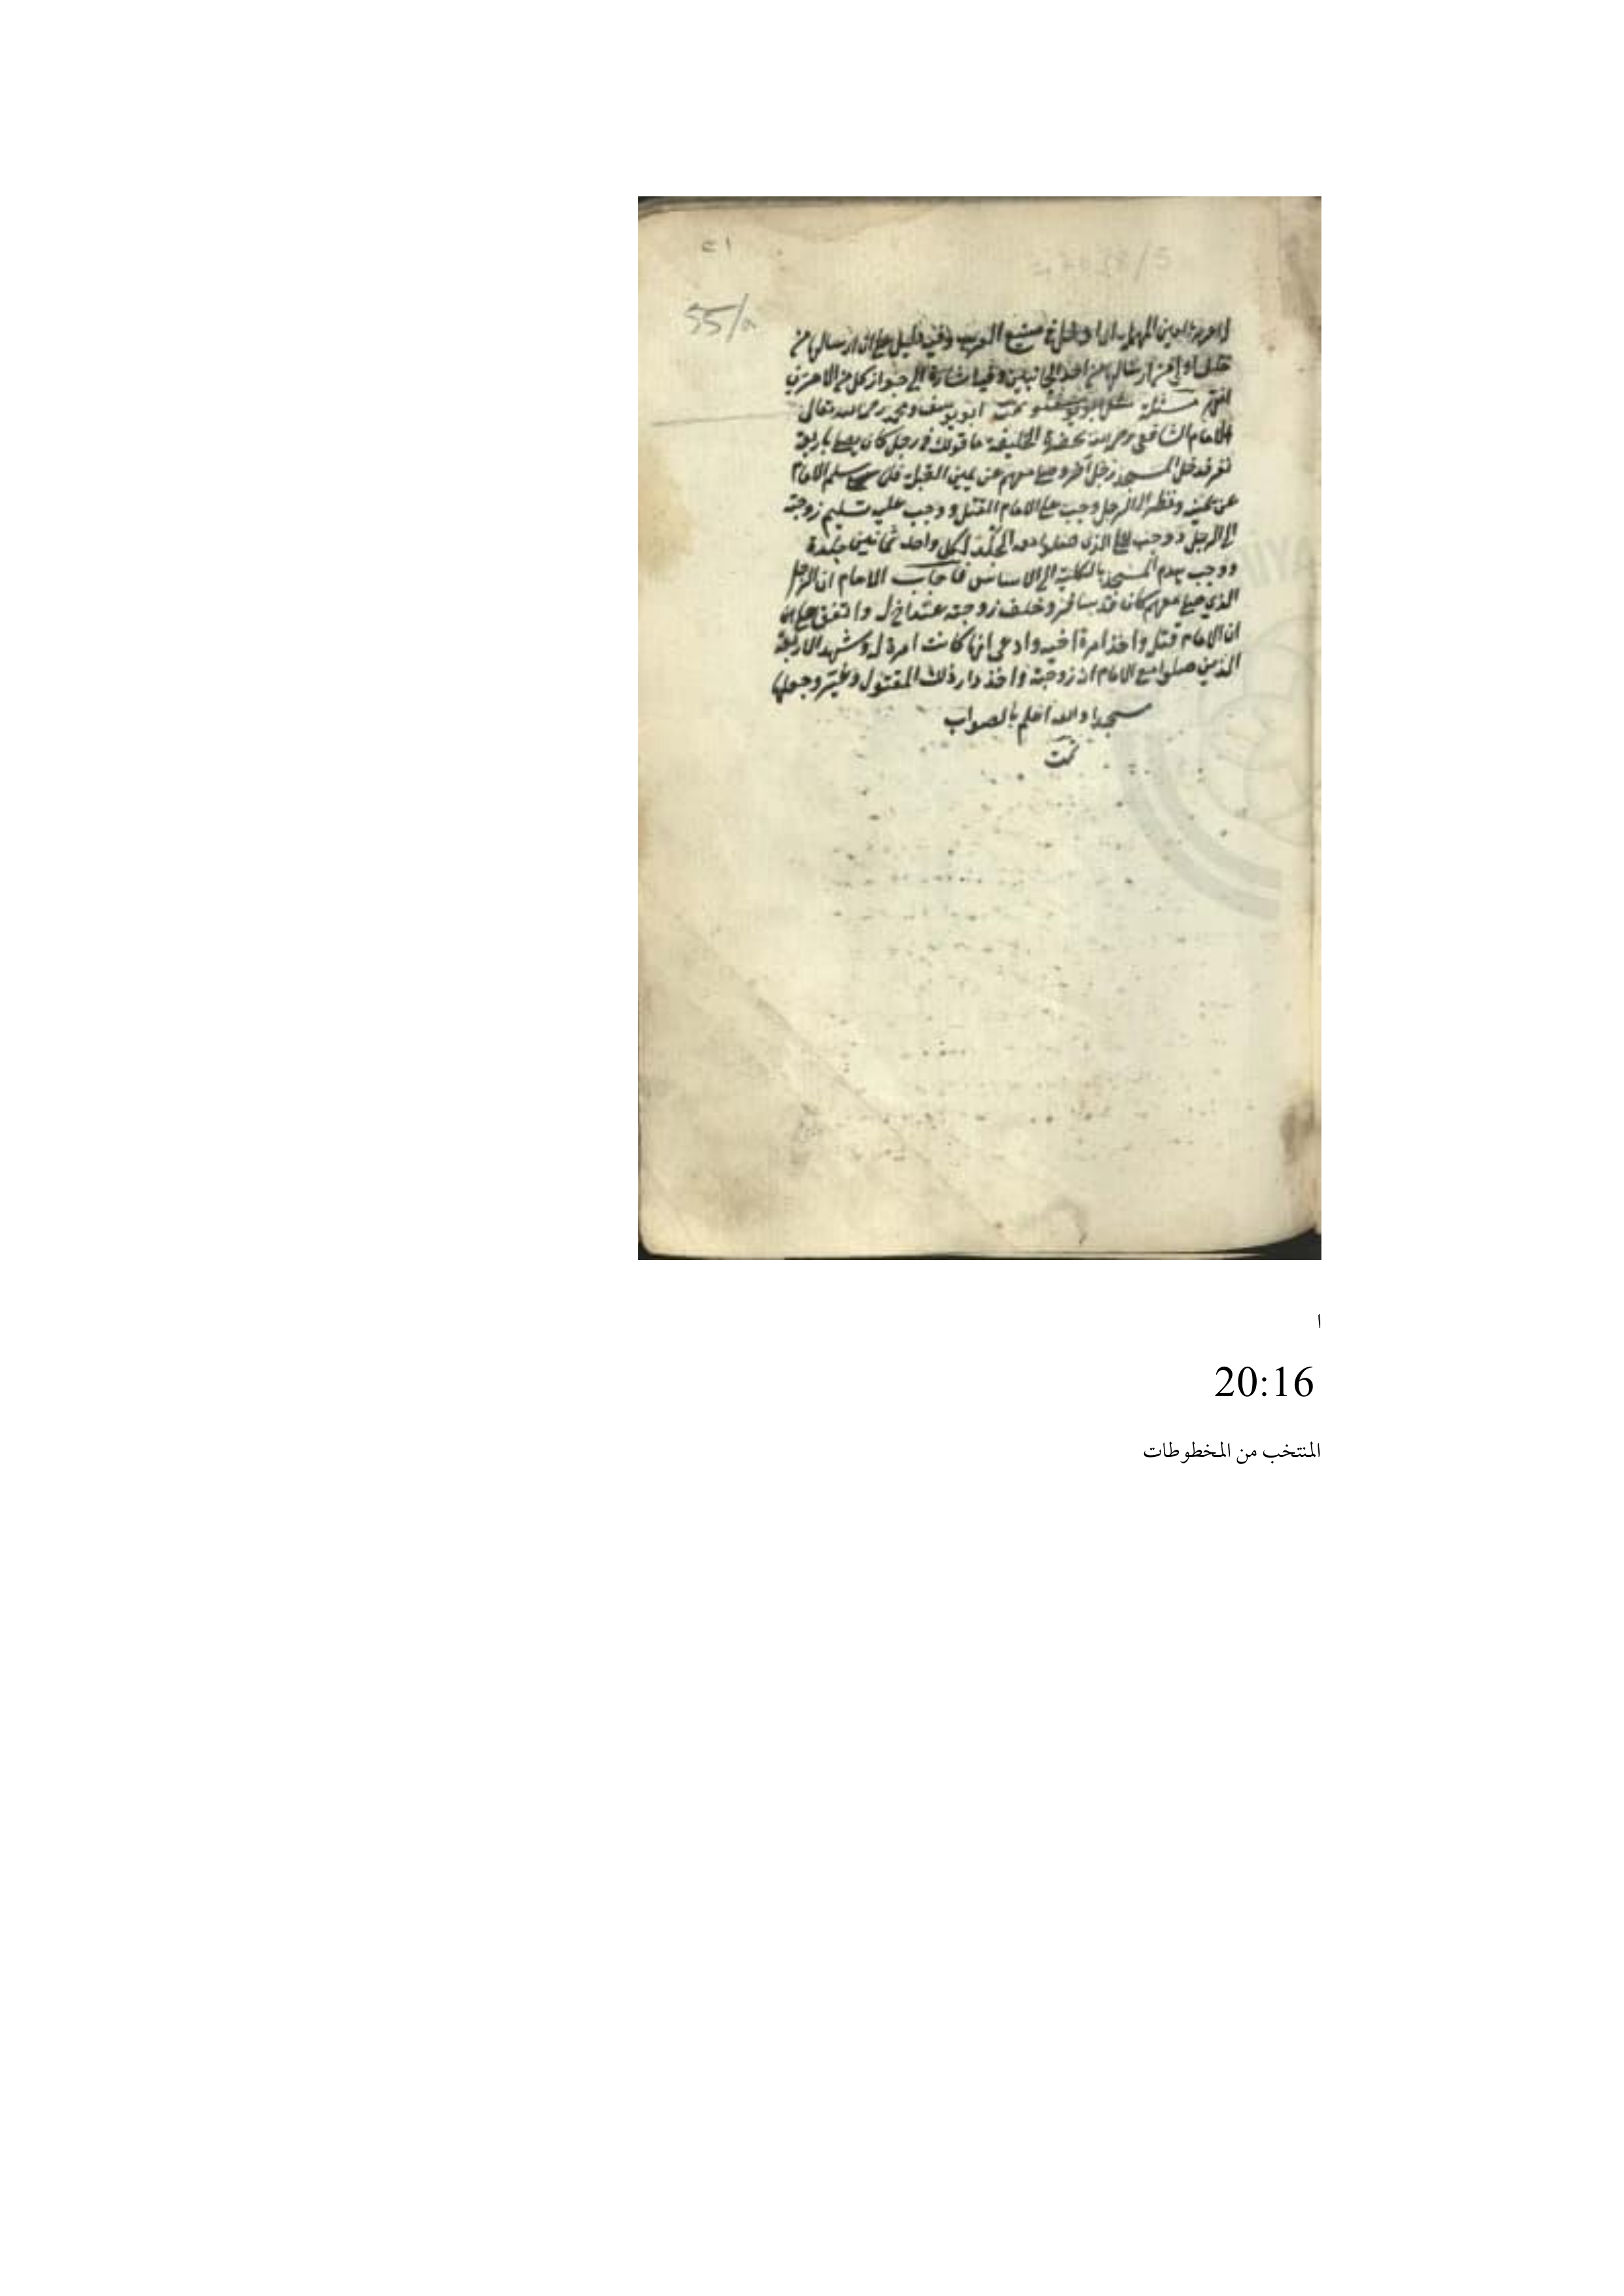 ٢١
55/a
وفيه دليل على ان ارسالها من
خلف اولى من ارسالها من احد الجانبين وفيه اشارة الى جواز كل من الامرين
انتهى مسئلة ابو يوسف ومحمد رحمهما الله تعالى
الامام الشافعي رحمه الله بحضرة الخليفة ما قولك في رجل كان يصلي باربعة
نفر فدخل المسجد رجل آخر وصلى معهم عن يمين القبلة فلما سلم الامام
عن يمينه ونظر الى الرجل وجب على الامام القتل ووجب عليه تسليم زوجته
الى الرجل ووجب على الذي صلوا معه الجلد لكل واحد ثمانين جلدة
ووجب هدم المسجد بالكلية الى الاساس فاجاب الامام ان الرجل
الذي صلى معهم كان قد سافر وخلف زوجته عند اخ له واتفق على ان
ان الامام قتل واخذ امرة اخيه وادعى انها كانت امرة له وشهد الاربعة
الذين صلوا مع الامام ان زوجته واخذ دار ذلك المقتول وغير وجعلها
مسجدا والله اعلم بالصواب
تمت
ا
20:16
المنتخب من المخطوطات